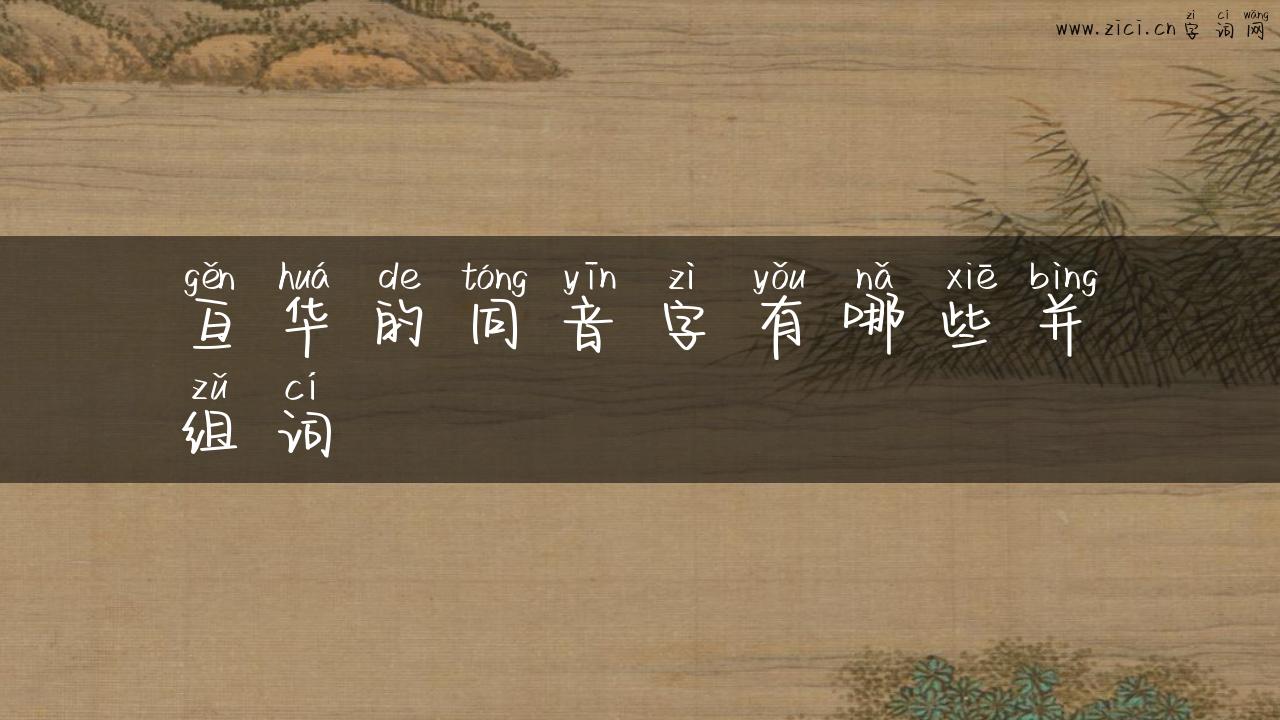 zì cí wǎng
www.zici.cn 字词网
gěn huá de tóng yīn zì yǒu nǎ xiē bìng
亘华的同音字有哪些并
zǔ cí
组词